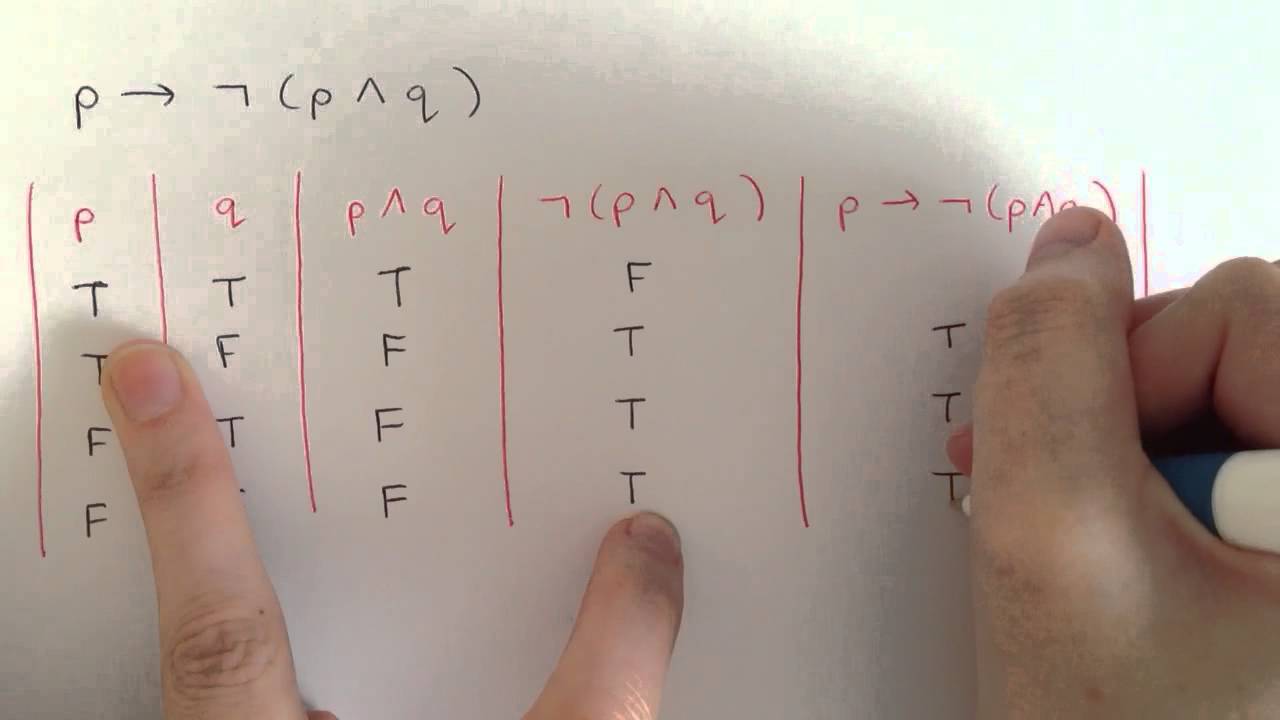 p → ¬ (p ∧ q)
p q p ∧ q ¬ (p ∧ q) p → ¬ (p ∧ q)
T T T F
T F F T T
F T F T T
F F T T